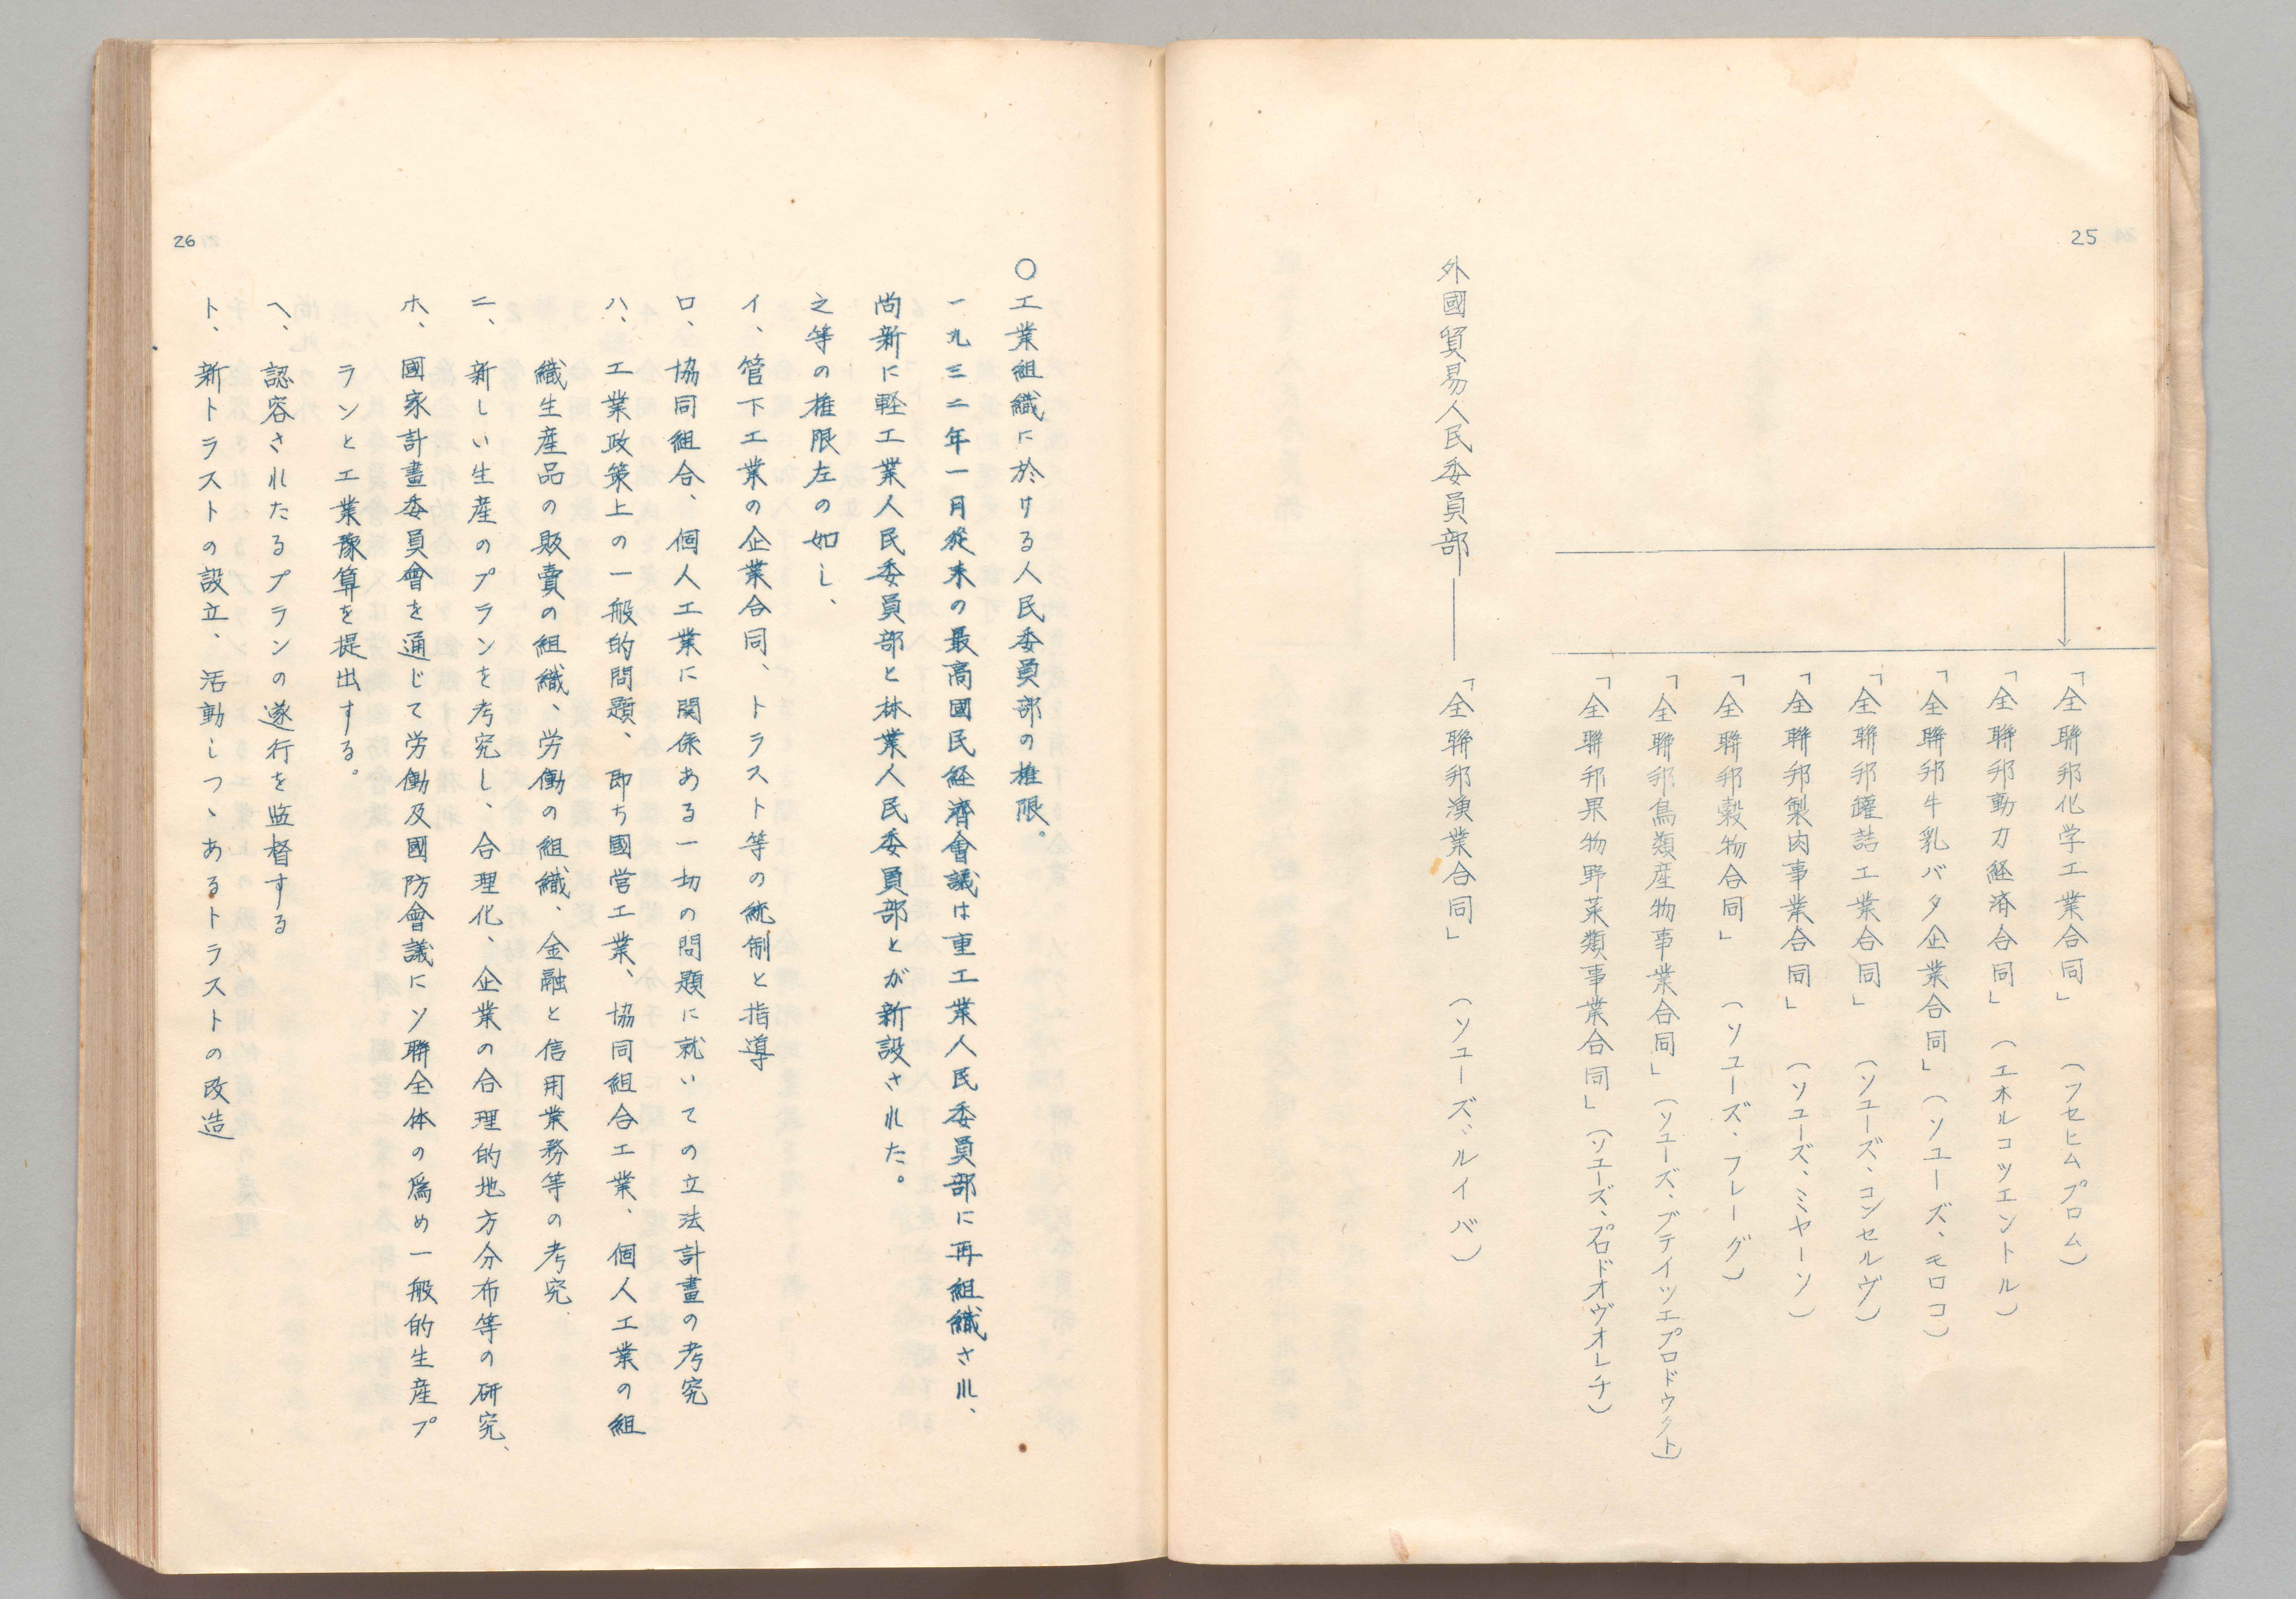 25
「全聯邦化学工業合同」（フセヒムプロム）
「全聯邦動力経済合同」（エネルコツエントル）
「全聯邦牛乳バタ企業合同」（ソユーズ、モロコ）
「全聯邦罐詰工業合同」（ソユーズ、コンセルヴ）
「全聯邦製肉事業合同」（ソユーズ、ミヤーソ）
「全聯邦穀物合同」（ソユーズ、フレーグ）
「全聯邦鳥類産物事業合同」（ソユーズ、プテイツエプロドウクト）
「全聯邦果物野菜類事業合同」（ソユーズ、プロドオヴオレチ）
外國貿易人民委員部――「全聯邦漁業合同」（ソユーズ、ルイバ）
○工業組織に於ける人民委員部の権限。
一九三二年一月従来の最高國民経済會議は重工業人民委員部に再組織され、
尚新に軽工業人民委員部と林業人民委員部とが新設された。
之等の権限左の如し、
イ、管下工業の企業合同、トラスト等の統制と指導
ロ、協同組合、個人工業に関係ある一切の問題に就いての立法計畫の考究
ハ、工業政策上の一般的問題、即ち國営工業、協同組合工業、個人工業の組
織生産品の販賣の組織、労働の組織、金融と信用業務等の考究
ニ、新しい生産のプランを考究し、合理化、企業の合理的地方分布等の研究、
ホ、國家計畫委員會を通じて労働及國防會議にソ聯全体の爲め一般的生産プ
ランと工業豫算を提出する。
ヘ、認容されたるプランの遂行を監督する
ト、新トラストの設立、活動しつゝあるトラストの改造
26